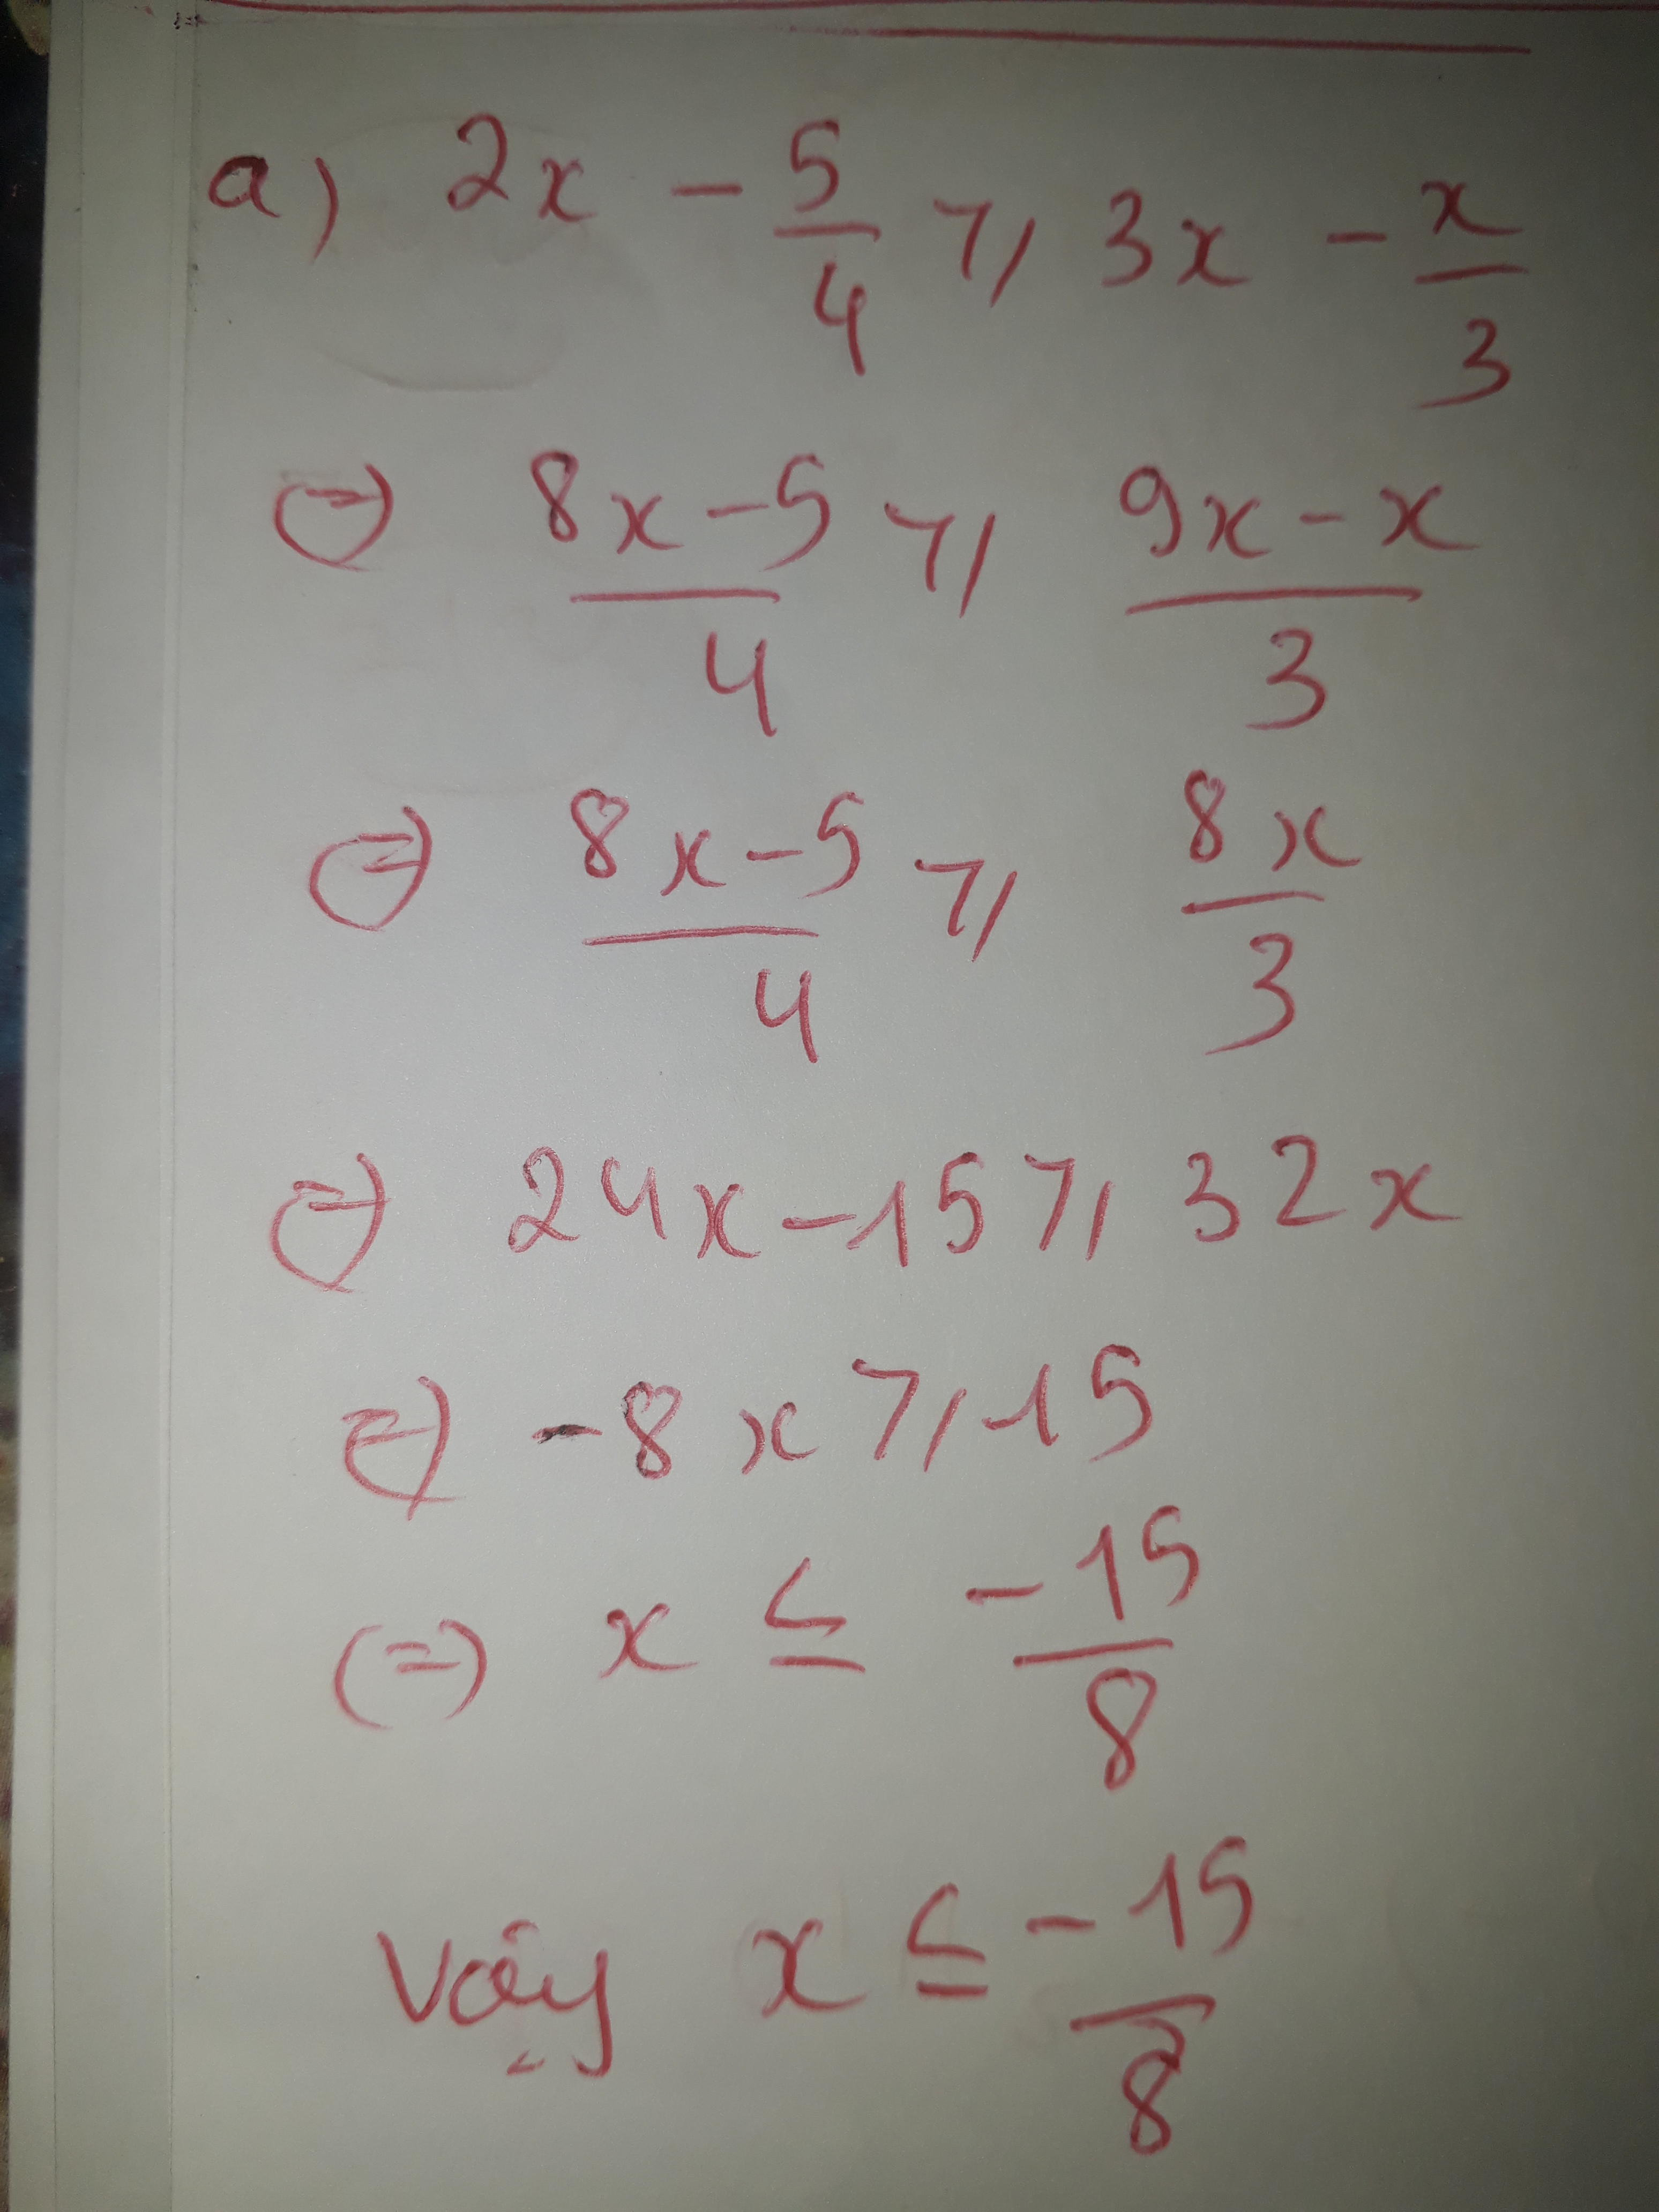 a) 2x - 5/4 ⩾ 3x - x/3
(=) (8x-5)/4 ⩾ (9x-x)/3
(=) (8x-5)/4 ⩾ 8x/3
(=) 24x-15 ⩾ 32x
(=) -8x ⩾ 15
(=) x ≤ -15/8
Vậy x ≤ -15/8